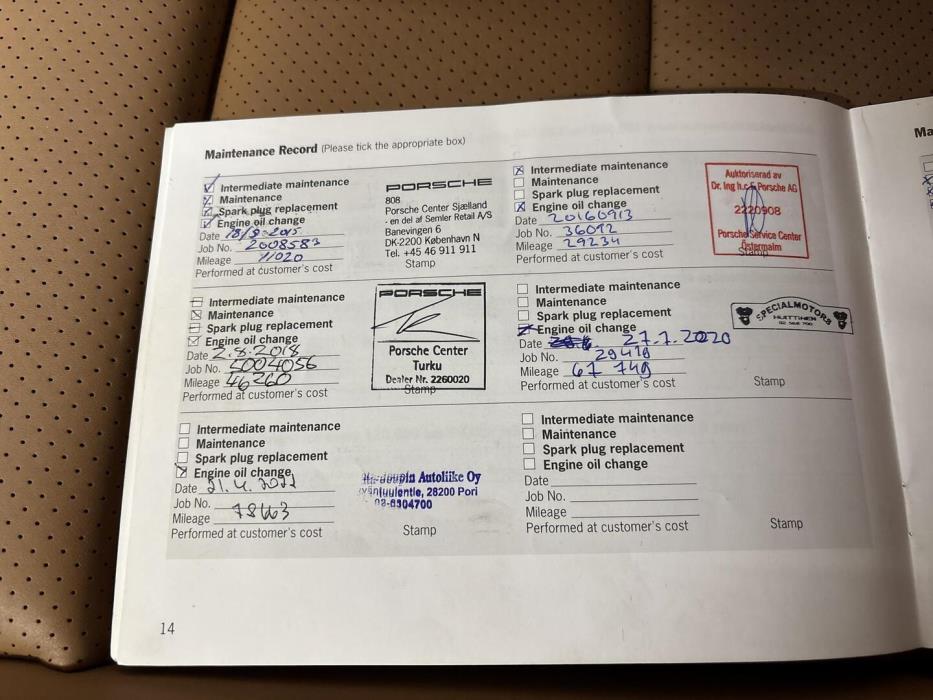 Maintenance Record (Please tick the appropriate box)
Intermediate maintenance
Maintenance
Spark plug replacement
Engine oil change
Date 18/9-2015
Job No. 2008583
Mileage
Performed at customer's cost
PORSCHE
808
Porsche Center Sjælland
- en del af Semler Retail A/S
Banevingen 6
DK-2200 København N
Tel. +45 46 911 911
Stamp
Intermediate maintenance
Maintenance
Spark plug replacement
Engine oil change
Date 20160913
Job No. 36092
Mileage 29234
Performed at customer's cost
Auktoriserad av
Dr. Ing h.c. F Porsche AG
2220908
Porsche Service Center
Östermalm
Stamp
Intermediate maintenance
Maintenance
Spark plug replacement
Engine oil change
Date 2.8.2018
Job No. 5004056
Mileage 46260
Performed at customer's cost
PORSCHE
Porsche Center
Turku
Dealer Nr. 2260020
Stamp
Intermediate maintenance
Maintenance
Spark plug replacement
Engine oil change
Date 27.7.2020
Job No. 29419
Mileage 67 749
Performed at customer's cost
SPECIALMOTORS
HUITTINEN
Stamp
Intermediate maintenance
Maintenance
Spark plug replacement
Engine oil change
Date 21.4.2022
Job No.
Mileage 78463
Performed at customer's cost
Autoliike Oy
28200 Pori
02-6304700
Stamp
Intermediate maintenance
Maintenance
Spark plug replacement
Engine oil change
Date
Job No.
Mileage
Performed at customer's cost
Stamp
14
Ma